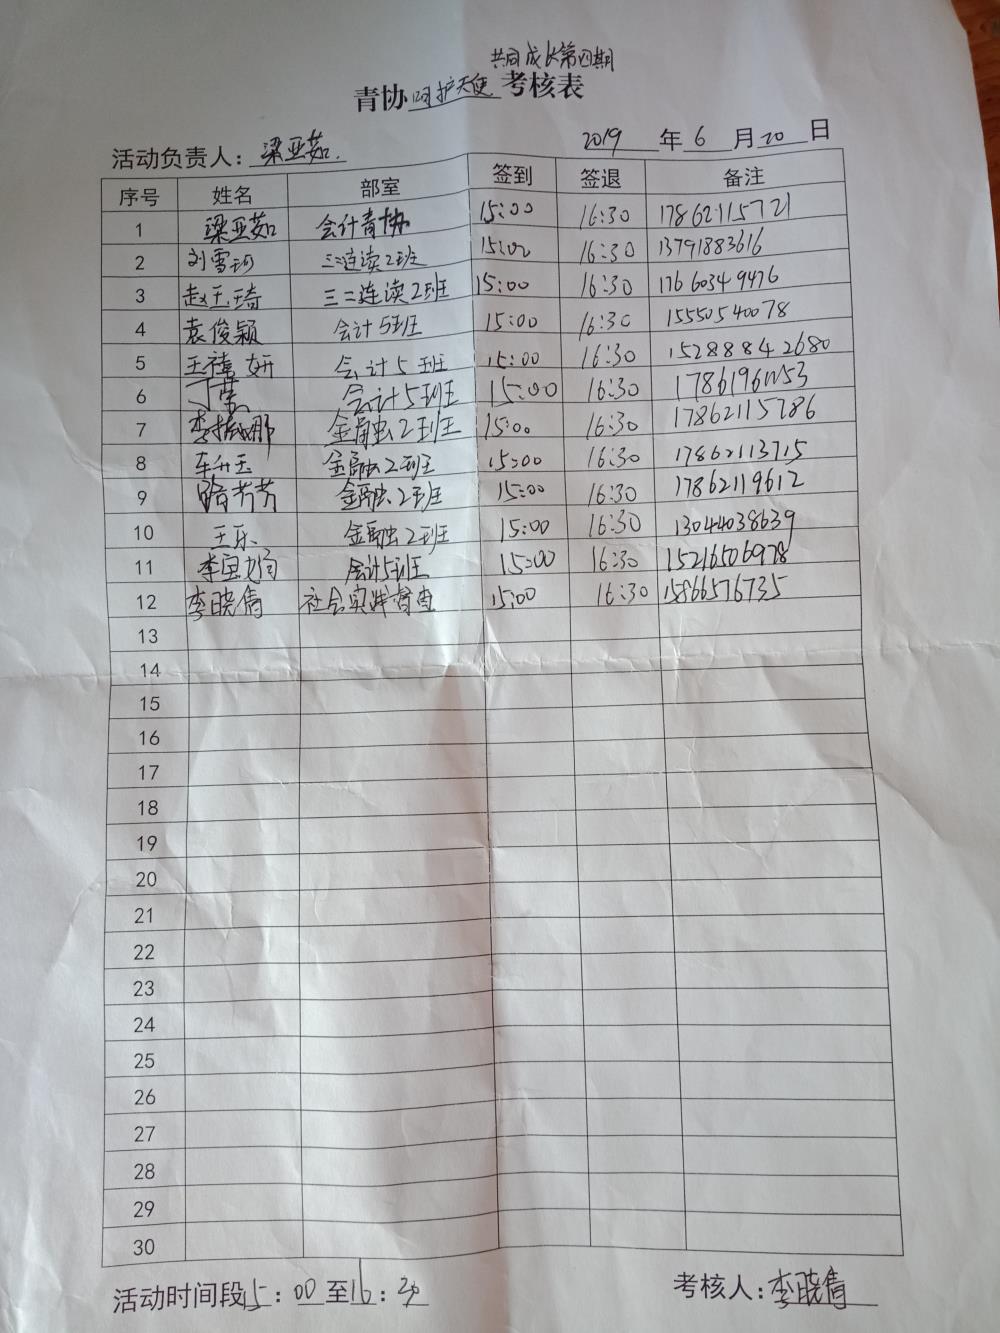 共同成长第四期
青协呵护天使考核表
活动负责人：梁亚茹.
2019 年 6 月 20 日
序号 姓名 部室 签到 签退 备注
1 梁亚茹 会计青协 15:00 16:30 17862115721
2 刘雪珂 三二连读2班 15:00 16:30 13791883616
3 赵玉琦 三二连读2班 15:00 16:30 17660349476
4 袁俊颖 会计5班 15:00 16:30 15550540078
5 王禕妍 会计5班 15:00 16:30 15288842680
6 会计5班 15:00 16:30
7 金融2班 15:00 16:30 17862115786
8 金融2班 15:00 16:30 17862113715
9 路芳芳 金融2班 15:00 16:30 17862119612
10 王乐 金融2班 15:00 16:30 13044038639
11 会计5班 15:00 16:30 15216506978
12 李晓倩 社会实践督查 15:00 16:30 15866576735
13
14
15
16
17
18
19
20
21
22
23
24
25
26
27
28
29
30
活动时间段15：00至16：30
考核人：李晓倩